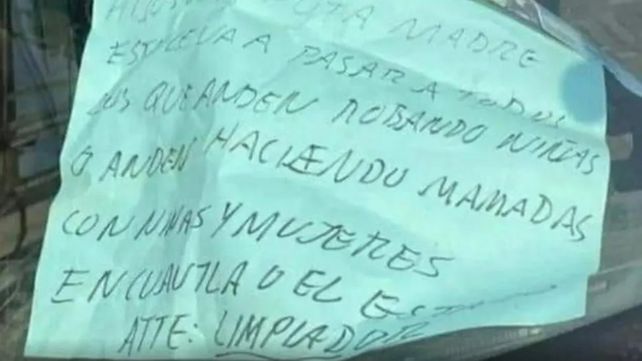 PUTA MADRE
ESTO LE VA A PASAR A TODOS
LOS QUE ANDEN ROBANDO NIÑAS
O ANDEN HACIENDO MAMADAS
CON NIÑAS Y MUJERES
EN CUAUTLA O EL
ATTE: LIMPIADOR